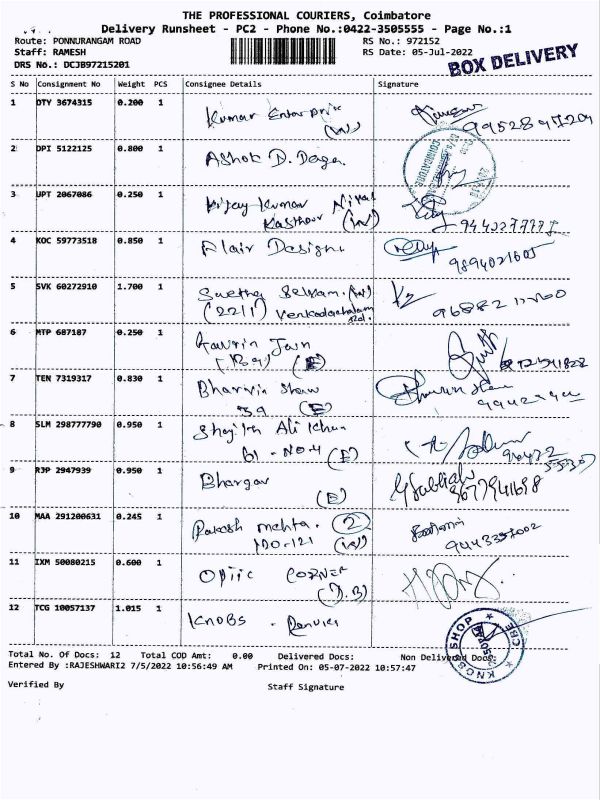 THE PROFESSIONAL COURIERS, Coimbatore
Delivery Runsheet - PC2 - Phone No.:0422-3505555 - Page No.:1
Route: PONNURANGAM ROAD
RS No.: 972152
Staff: RAMESH
RS Date: 05-Jul-2022
DRS No.: DCJB97215201
BOX DELIVERY
S No Consignment No Weight PCS Consignee Details Signature
1 DTY 3674315 0.200 1 Kumar Enterprise (W)
2 DPI 5122125 0.800 1 Ashok D. Daga
COIMBATORE
3 UPT 2067086 0.250 1 Vijay Kumar Nivas
Kasthuri (W)
4 KOC 59773518 0.850 1 Flair Designs
9894021605
5 SVK 60272910 1.700 1 Swetha Selvam (W)
(2211) Venkadachalam Rd.
6 MTP 687187 0.250 1 Jain
(E)
7 TEN 7319317 0.830 1 Bharvin Shaw
39 (E)
8 SLM 298777790 0.950 1 Shajith Ali Khan
61 - NO-4 (E)
9 RJP 2947939 0.950 1 Bhargav
(E)
8677941698
10 MAA 291200631 0.245 1 Rakesh mehta. (2)
NO-121 (W)
9443357002
11 IXM 50080215 0.600 1 Optic CORNER
(D.B)
12 TCG 10057137 1.015 1 KNOBS -
KNOBS SHOP CBE
Total No. Of Docs: 12 Total COD Amt: 0.00 Delivered Docs: Non Delivered Docs:
Entered By :RAJESHWARI2 7/5/2022 10:56:49 AM Printed On: 05-07-2022 10:57:47
Verified By
Staff Signature